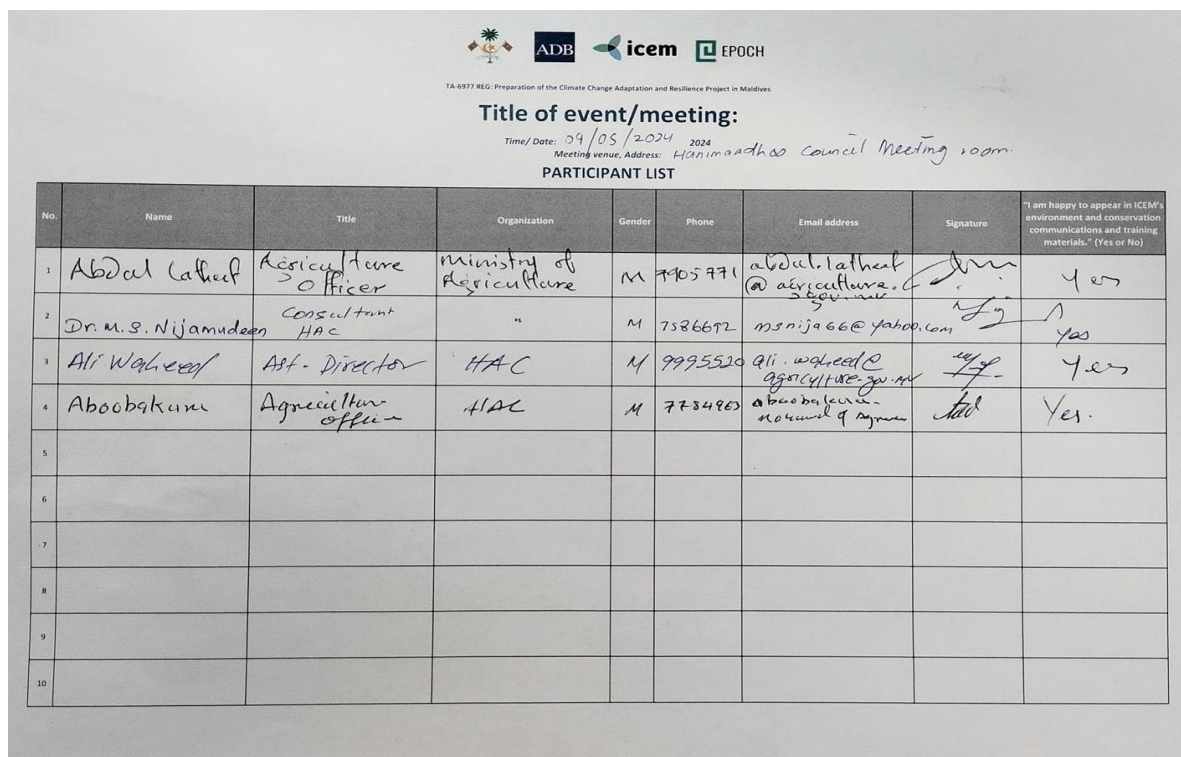 ADB icem EPOCH
TA-6977 REG: Preparation of the Climate Change Adaptation and Resilience Project in Maldives
Title of event/meeting:
Time/ Date: 09/05/2024 2024
Meeting venue, Address: Hanimaadhoo Council Meeting room.
PARTICIPANT LIST
No. Name Title Organization Gender Phone Email address Signature "I am happy to appear in ICEM's environment and conservation communications and training materials." (Yes or No)
1 Abdul Latheef Agriculture Officer Ministry of Agriculture M 7905771 abdul.latheef@agriculture.gov.mv Yes
2 Dr. M. S. Nijamudeen Consultant HAC " M msnija66@yahoo.com Yes
3 Ali Waheed Ast. Director HAC M 9995520 ali.waheed@agriculture.gov.mv Yes
4 Aboobakuru Agriculture officer HAC M 7784963 Yes.
5
6
7
8
9
10